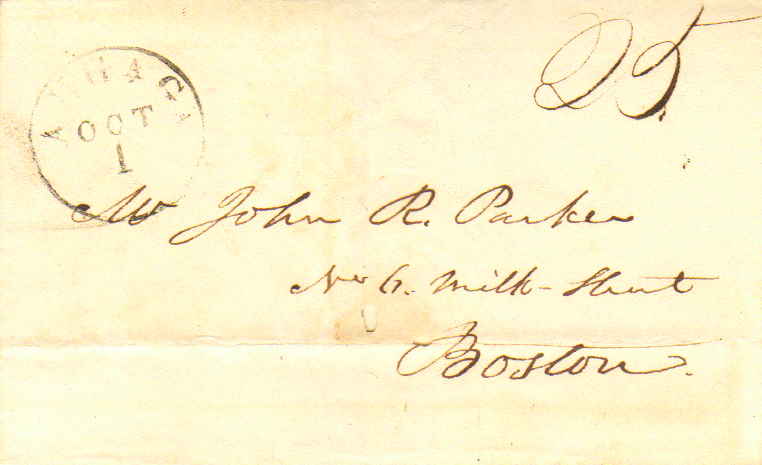 25.
OCT
1
Mr John R. Parker
No 6. Milk-Street
Boston.